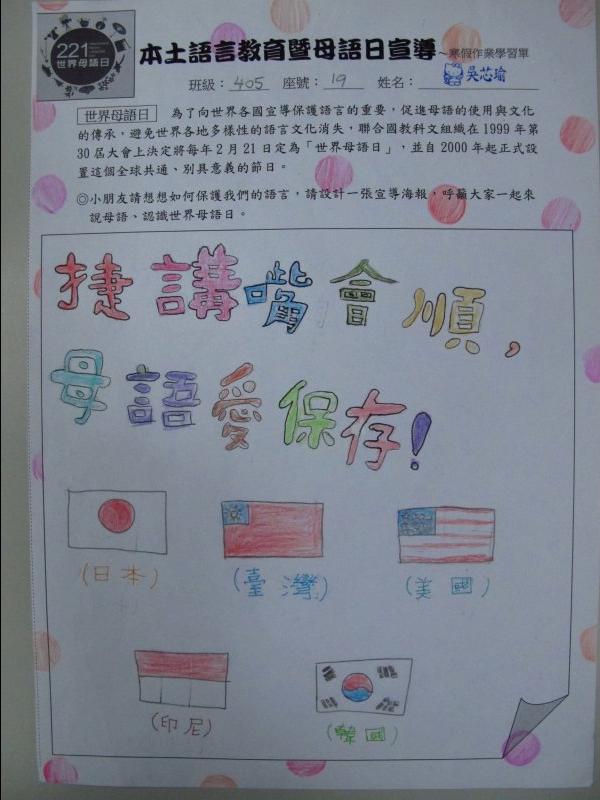 221
世界母語日
本土語言教育暨母語日宣導~寒假作業學習單
班級: 405 座號: 19 姓名: 吳芯瑜
世界母語日 為了向世界各國宣導保護語言的重要,促進母語的使用與文化
的傳承,避免世界各地多樣性的語言文化消失,聯合國教科文組織在1999年第
30屆大會上決定將每年2月21日定為「世界母語日」,並自2000年起正式設
置這個全球共通、別具意義的節日。
◎小朋友請想想如何保護我們的語言,請設計一張宣導海報,呼籲大家一起來
說母語、認識世界母語日。
捷講嘴會順,
母語愛保存!
(日本) (臺灣) (美國)
(印尼) (韓國)